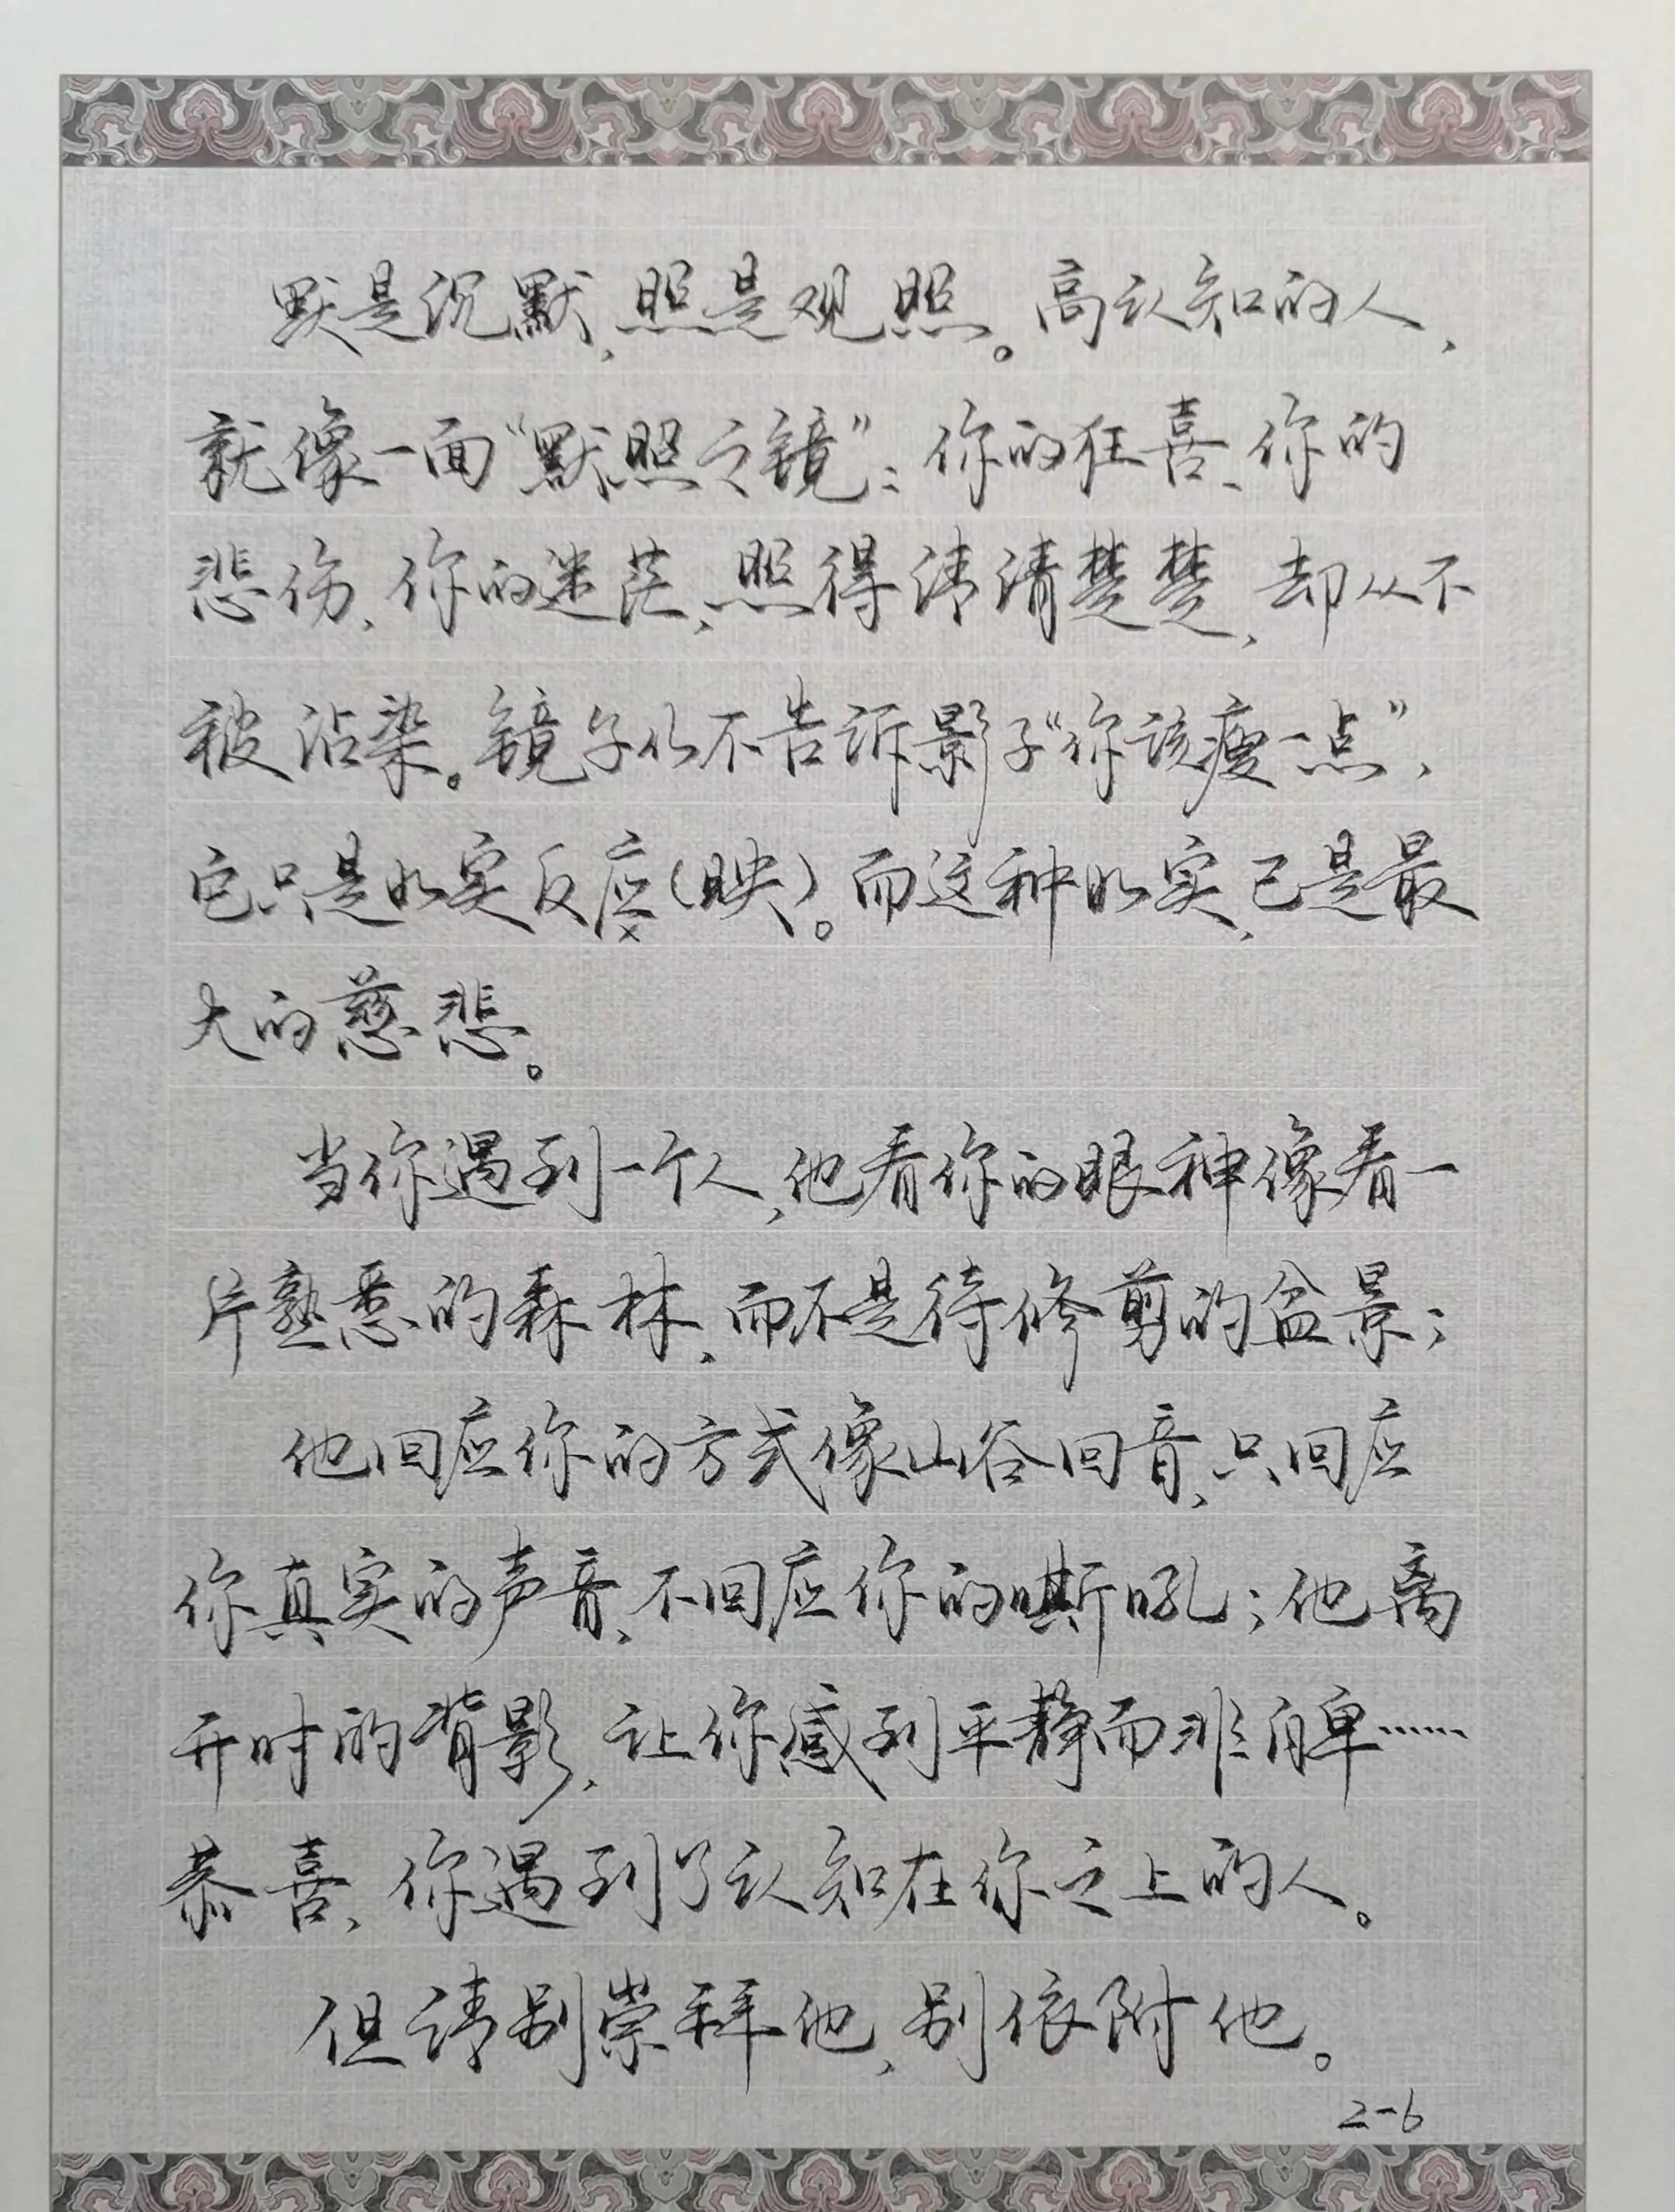 默是沉默,照是观照。高认知的人,
就像一面“默照之镜”:你的狂喜、你的
悲伤、你的迷茫,照得清清楚楚,却从不
被沾染。镜子从不告诉影子“你该瘦一点”,
它只是如实反应(映)。而这种如实,已是最
大的慈悲。
当你遇到一个人,他看你的眼神像看一
片熟悉的森林,而不是待修剪的盆景;
他回应你的方式像山谷回音,只回应
你真实的声音,不回应你的嘶吼;他离
开时的背影,让你感到平静而非自卑……
恭喜,你遇到了认知在你之上的人。
但请别崇拜他,别依附他。
2-6